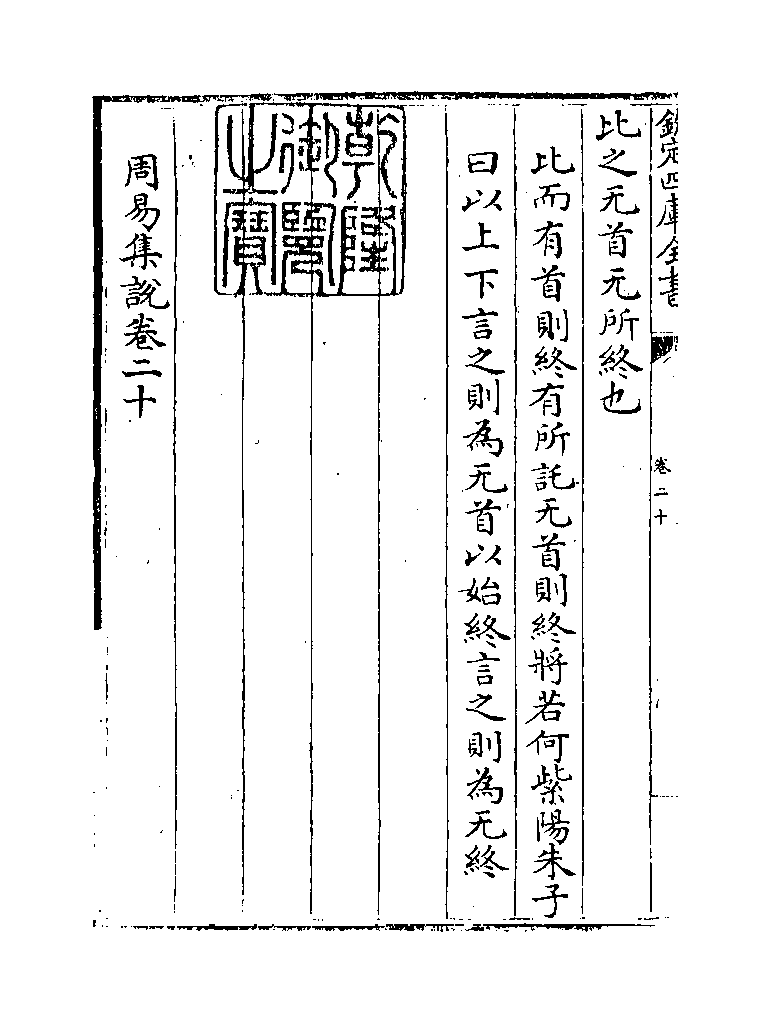 欽定四庫全書
卷二十
比之无首无所終也
比而有首則終有所託无首則終將若何紫陽朱子
曰以上下言之則為无首以始終言之則為无終
乾隆
御覽
之寶
周易集說卷二十